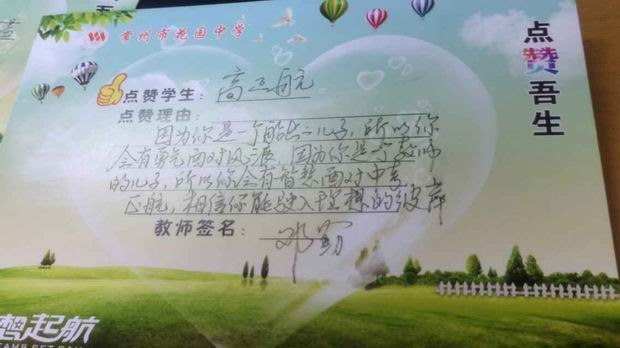 常州市花园中学
点赞吾生
点赞学生：高正航
点赞理由：
因为你是一个船长之儿子，所以你
会有勇气面对风浪，因为你是个教师
的儿子，所以你会有智慧面对中考
正航，相信你能驶入理想的彼岸
教师签名：邓
想起航